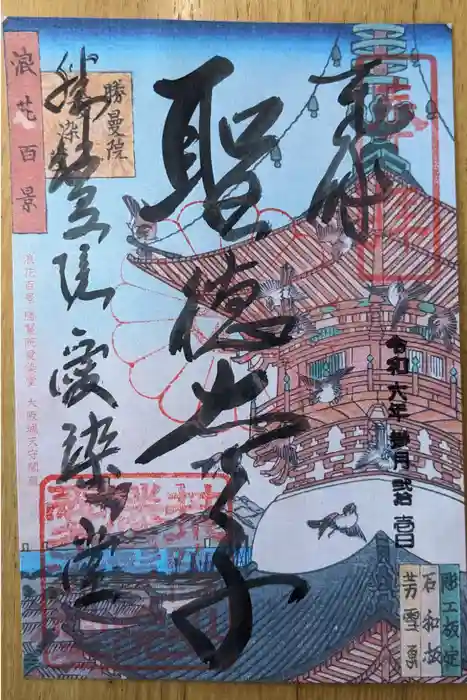 奉拝
聖徳太子
勝鬘院愛染堂
令和六年 参月 弐拾壱日
浪花百景
勝曼院
浪花百景 勝鬘院愛染堂 大阪城天守閣蔵
彫工板定
石和板
芳雪画